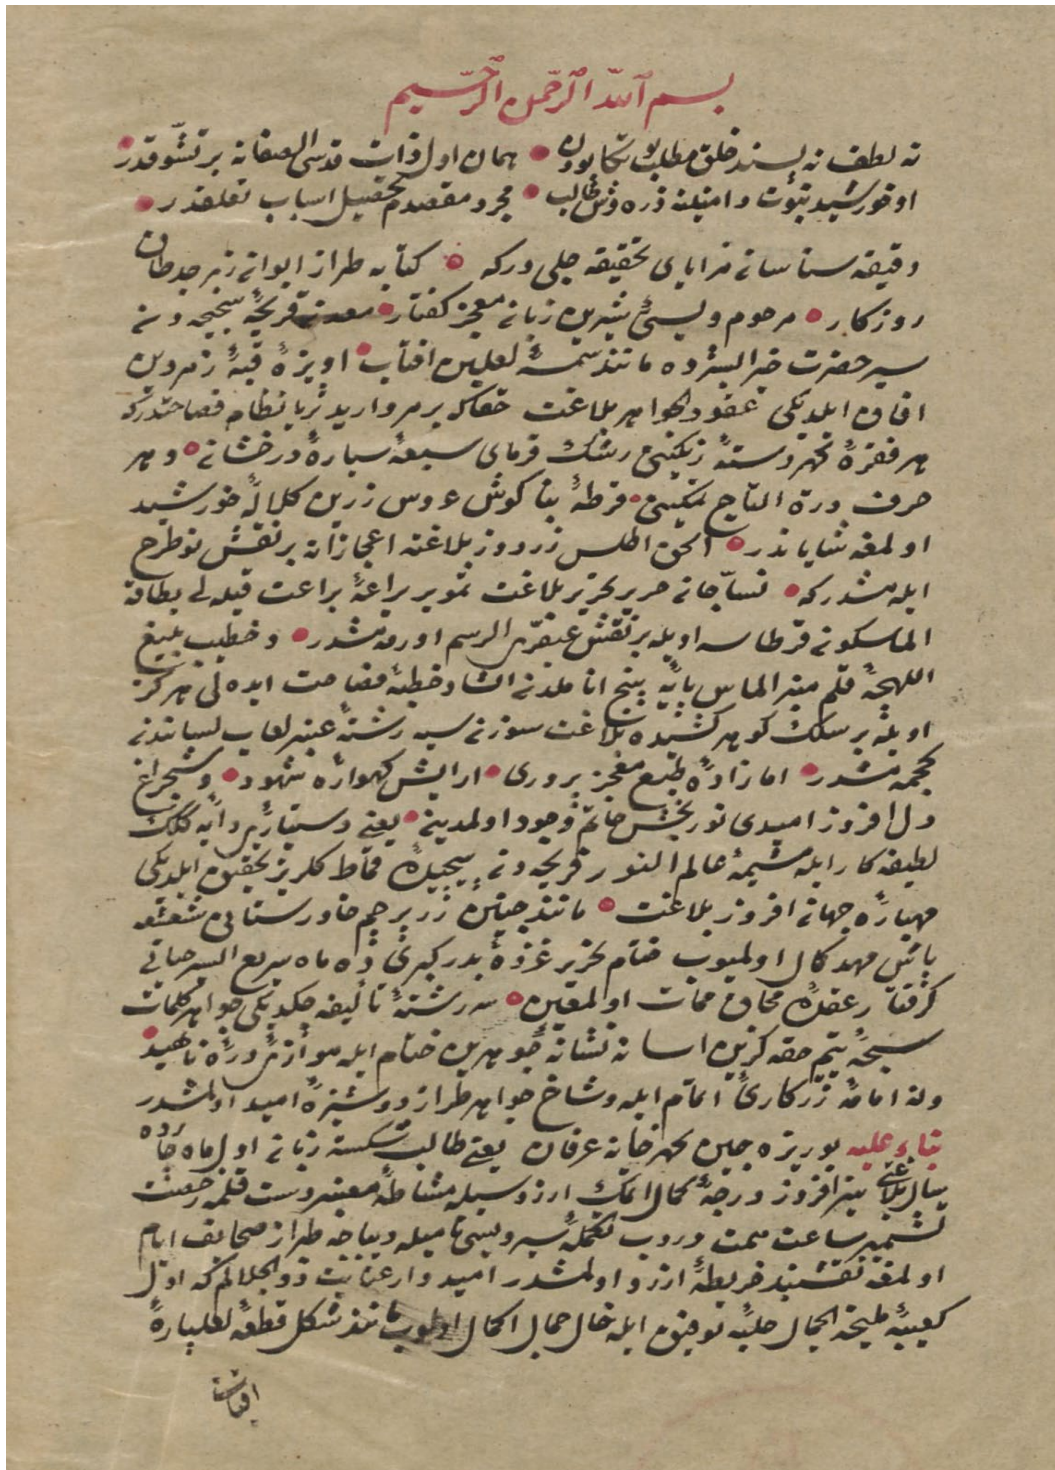 بسم الله الرحمن الرحيم
نه لطف نه پسند خلق مطلب بو تكابودن همان اول ذات قدسى الصفاته بر تشوقدر
او خورشيد نبوت دامنينه ذره وش طالب مجرد مقصدم تحصيل اسباب تعلقدر
دقيقه سناسان مزاياى تحقيقه جلى دركه كتابه طراز ايوان زبرجد طاق
روزكار مرحوم ويسئ شيرين زبان معجز كفتار معدن قريحۀ سنجيده دن
سير حضرت خير البشرده مانند شمسۀ لعلين افتاب اويزۀ قبۀ زمردين
افاق ايلديكى عقود الجواهر بلاغت حقاكه بر مرواريد ثريا نظام فصاحتدركه
هر فقرۀ كهردستۀ رنكينى رشك فرماى سبعۀ سيارۀ درخشان وهر
حرف درة التاج نمكينى قرطۀ بناكوش عروس زرين كلالۀ خورشيد
اولمغه شاياندر الحق اطلس زردوز بلاغته اعجازانه بر نقش نو طرح
ايلمشدركه نساجان حرير تحرير بلاغت تموير يراعۀ براعت قيله لى بطاقۀ
الماسكون قرطاسه اويله بر نقش عبقرى الرسم اورمشدر وخطيب بليغ
اللهجۀ قلم منبر الماس پايۀ پنج اناملدن انشاد خطبۀ فصاحت ايده لى هركز
اويله بر سلك كوهر كشيدۀ بلاغت سوزن سررشتۀ عنبر لعاب لسانندن
كچممشدر اما زادۀ طبع معجز پرورى ارايش كهوارۀ شهود وشبچراغ
دل افروز اميدى نور بخش خانۀ وجود اولمدين يعنى دستيارئ دايۀ كلك
لطيفه كار ايله مشيمۀ عالم النور قريحه دن پيچيدۀ قماط كلريز تحقيق ايلديكى
مهپارۀ جهان افروز بلاغت مانند جبين زرپرچم خاورستانى شعشعه
پاش مهد كمال اولميوب ختام تحرير غزوۀ بدر كبرى ده ماه سريع السير حياتى
كرفتار عقدۀ محاق ممات اولمغين سررشتۀ تأليفه چكديكى جواهر كلمات
سبحۀ يتيم حقه كزين اسا نه نشانۀ كوهرين ختام ايله موازئ درۀ ناهيد
ونه امامۀ زركارئ اتمام ايله وشاخ جواهر طراز دوشيزۀ اميد اولمشدر
بناء عليه بوريزه چين كهرخانۀ عرفان يعنى طالب شكسته زبان اول ماه چارده
شال بلاغتى بزم افروز درجۀ كمال ايتمك ارزوسيله مشاطۀ معنبر دست قلمه رخصت
تشمير ساعد همت ويروب تكملۀ سير ويسى ناميله ديباجه طراز صحايف ايام
اولمغه نقشبند خريطۀ ارزو اولمشدر اميدوار عنايت ذو الجلالم كه اول
كعيبۀ مليحة الجمال حليۀ توفيق ايله خال جمال اكمال اولوب مانند شكل قطعۀ لعلپارۀ
افتاب